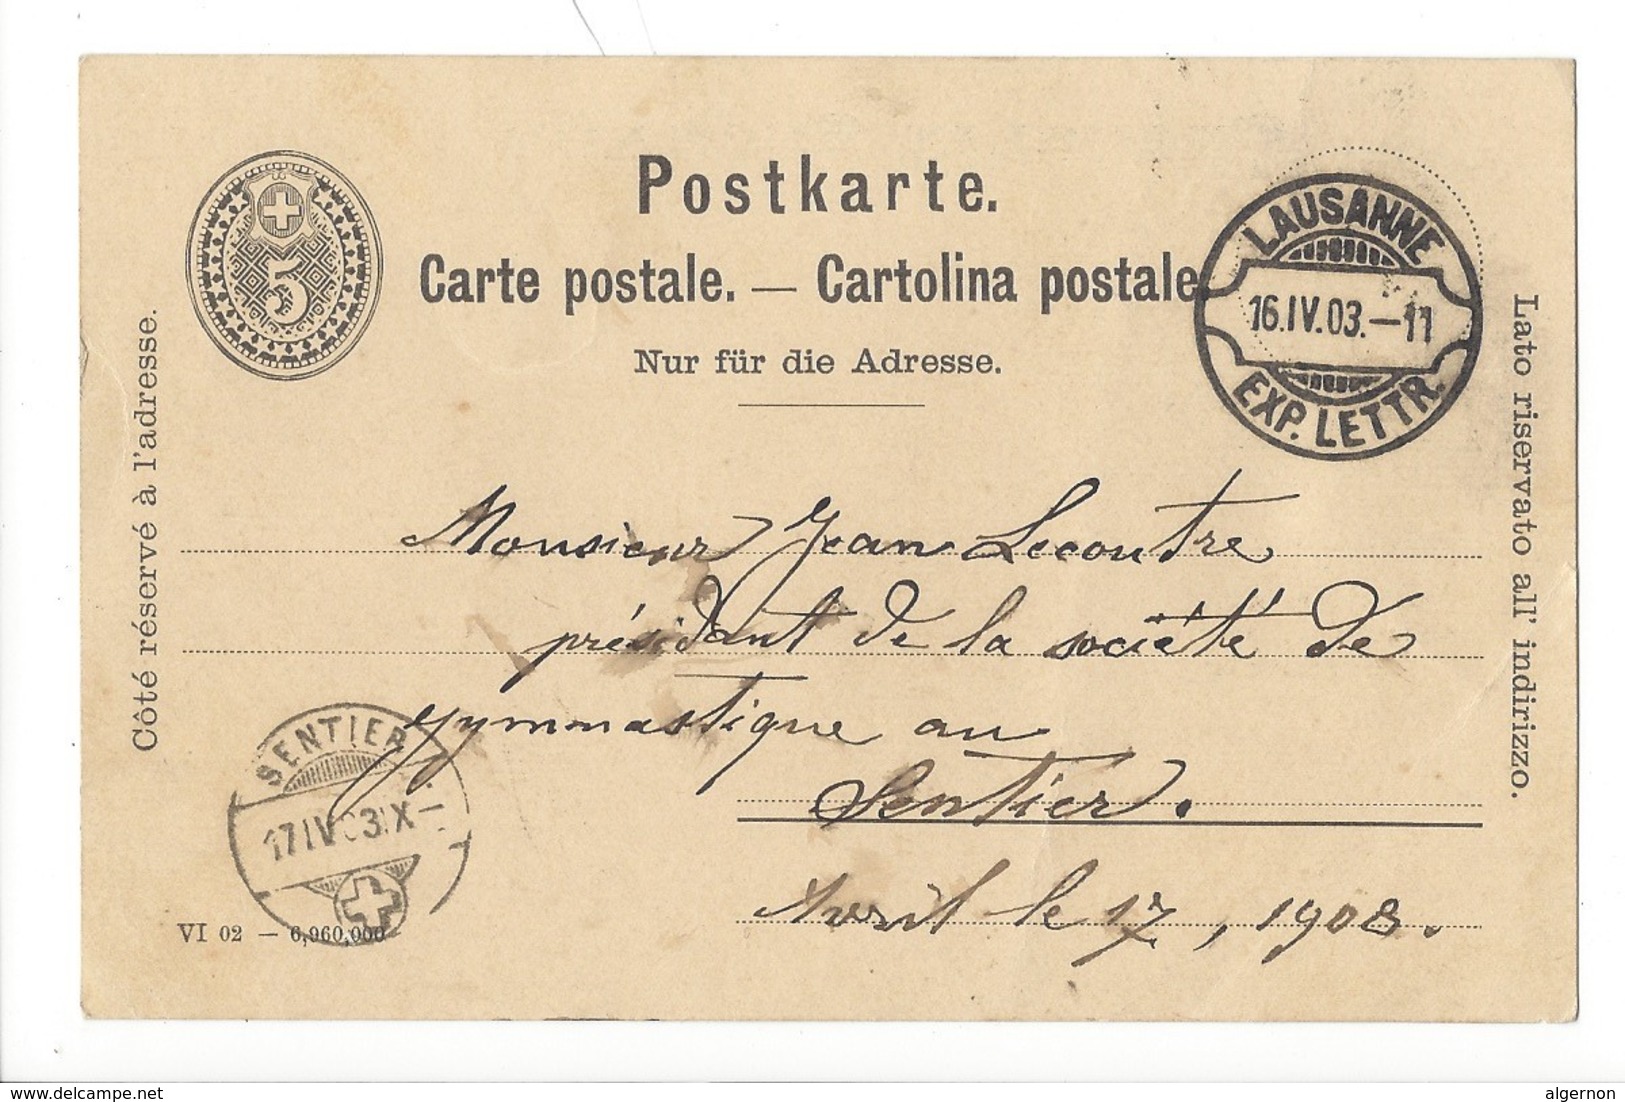 Postkarte.
Carte postale. — Cartolina postale
Nur für die Adresse.
Côté réservé à l'adresse.
Lato riservato all' indirizzo.
5
LAUSANNE
16.IV.03.–11
EXP. LETTR.
Monsieur Jean Lecoutre
présidant de la société de
gymnastique au
Sentier.
Avril le 17, 1903.
SENTIER
17 IV 03 IX–
VI 02 — 6,960,000
delcampe.net
algernon